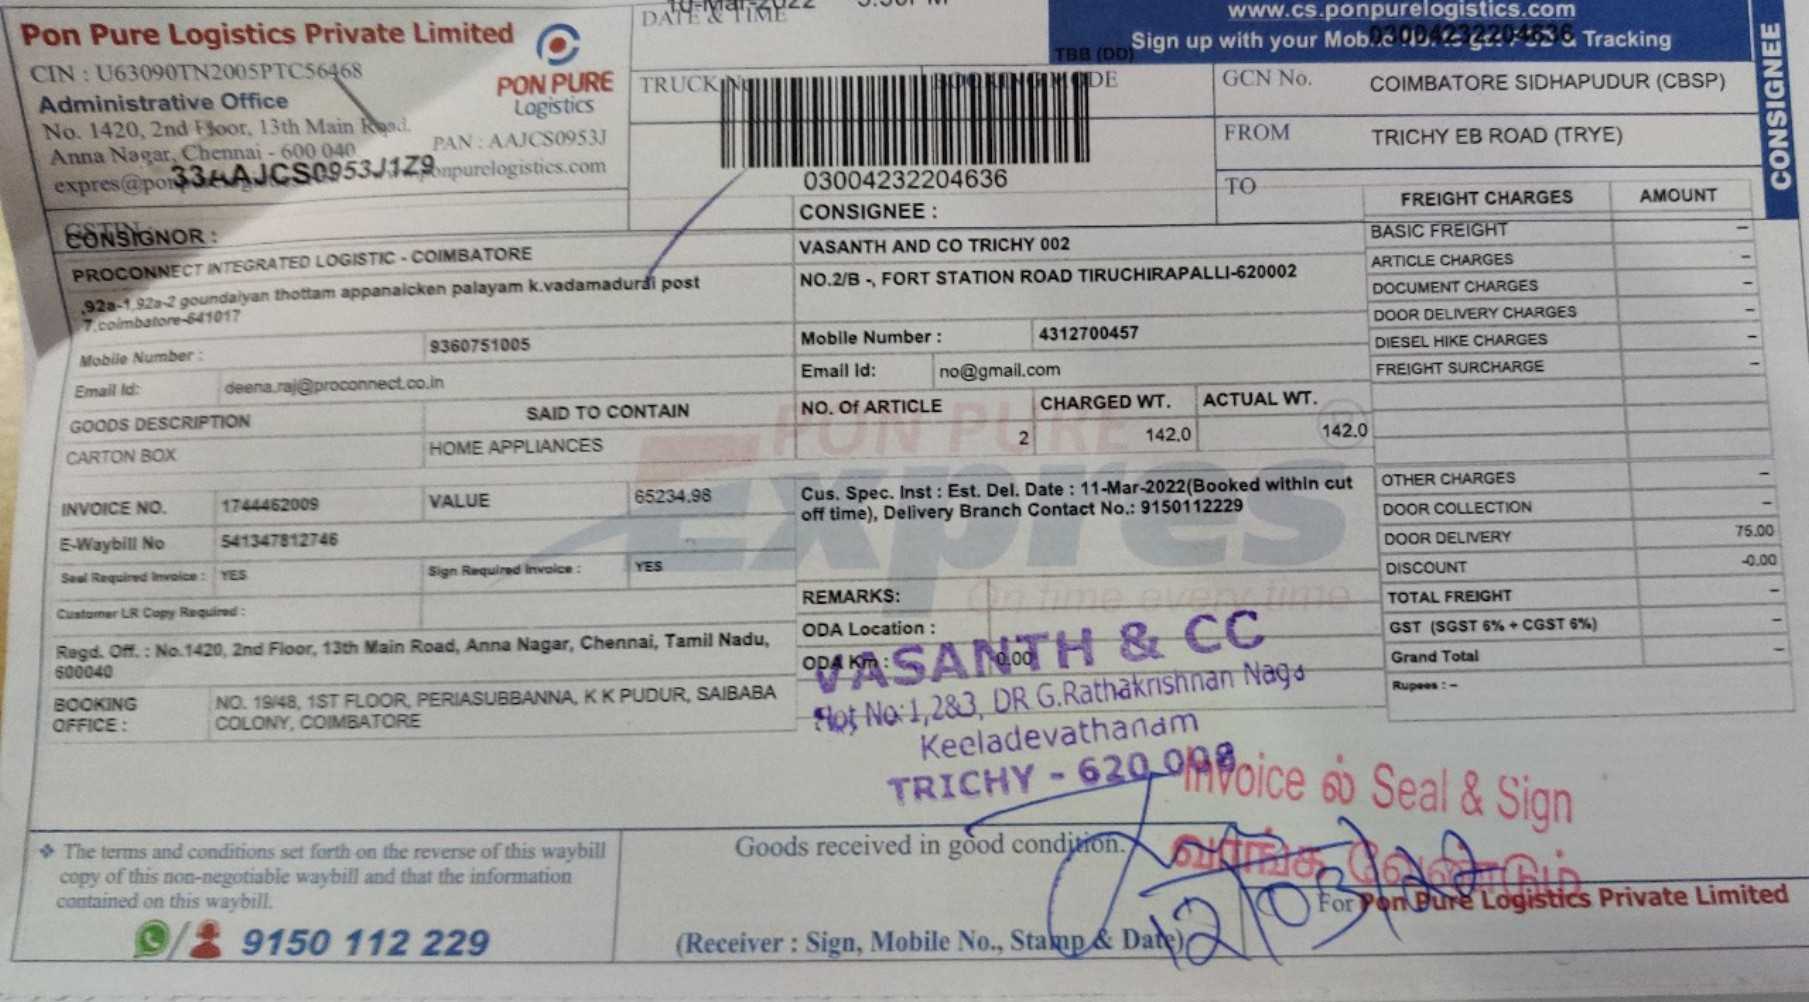 Pon Pure Logistics Private Limited
CIN : U63090TN2005PTC56468
Administrative Office
No. 1420, 2nd Floor, 13th Main Road.
Anna Nagar, Chennai - 600 040
PAN : AAJCS0953J
33AAJCS0953J1Z9
PON PURE
Logistics
DATE & TIME
TRUCK No
TBB (DD)
BOOKING MODE
03004232204636
www.cs.ponpurelogistics.com
Sign up with your & Tracking
03004232204636
GCN No.
COIMBATORE SIDHAPUDUR (CBSP)
FROM
TRICHY EB ROAD (TRYE)
TO
CONSIGNEE
CONSIGNOR :
PROCONNECT INTEGRATED LOGISTIC - COIMBATORE
,92a-1,92a-2 goundaiyan thottam appanaicken palayam k.vadamadurai post
7,coimbatore-641017
Mobile Number : 9360751005
Email Id: deena.raj@proconnect.co.in
CONSIGNEE :
VASANTH AND CO TRICHY 002
NO.2/B -, FORT STATION ROAD TIRUCHIRAPALLI-620002
Mobile Number : 4312700457
Email Id: no@gmail.com
GOODS DESCRIPTION SAID TO CONTAIN NO. Of ARTICLE CHARGED WT. ACTUAL WT.
CARTON BOX HOME APPLIANCES 2 142.0 142.0
INVOICE NO. 1744462009 VALUE 65234.98
E-Waybill No 541347812746
Seal Required Invoice : YES Sign Required Invoice : YES
Customer LR Copy Required :
Regd. Off. : No.1420, 2nd Floor, 13th Main Road, Anna Nagar, Chennai, Tamil Nadu,
600040
BOOKING OFFICE : NO. 19/48, 1ST FLOOR, PERIASUBBANNA, K K PUDUR, SAIBABA
COLONY, COIMBATORE
Cus. Spec. Inst : Est. Del. Date : 11-Mar-2022(Booked within cut
off time), Delivery Branch Contact No.: 9150112229
REMARKS:
ODA Location :
ODA Km : 0.00
PON PURE
Expres
On time every time
FREIGHT CHARGES AMOUNT
BASIC FREIGHT –
ARTICLE CHARGES –
DOCUMENT CHARGES –
DOOR DELIVERY CHARGES –
DIESEL HIKE CHARGES –
FREIGHT SURCHARGE –
OTHER CHARGES –
DOOR COLLECTION –
DOOR DELIVERY 75.00
DISCOUNT -0.00
TOTAL FREIGHT –
GST (SGST 6% + CGST 6%) –
Grand Total –
Rupees : –
VASANTH & CC
Plot No:1,2&3, DR G.Rathakrishnan Naga
Keeladevathanam
TRICHY - 620 008
Invoice ல் Seal & Sign
வாங்க வேண்டும்
❖ The terms and conditions set forth on the reverse of this waybill
copy of this non-negotiable waybill and that the information
contained on this waybill.
9150 112 229
Goods received in good condition.
12/03/22
(Receiver : Sign, Mobile No., Stamp & Date)
For Pon Pure Logistics Private Limited